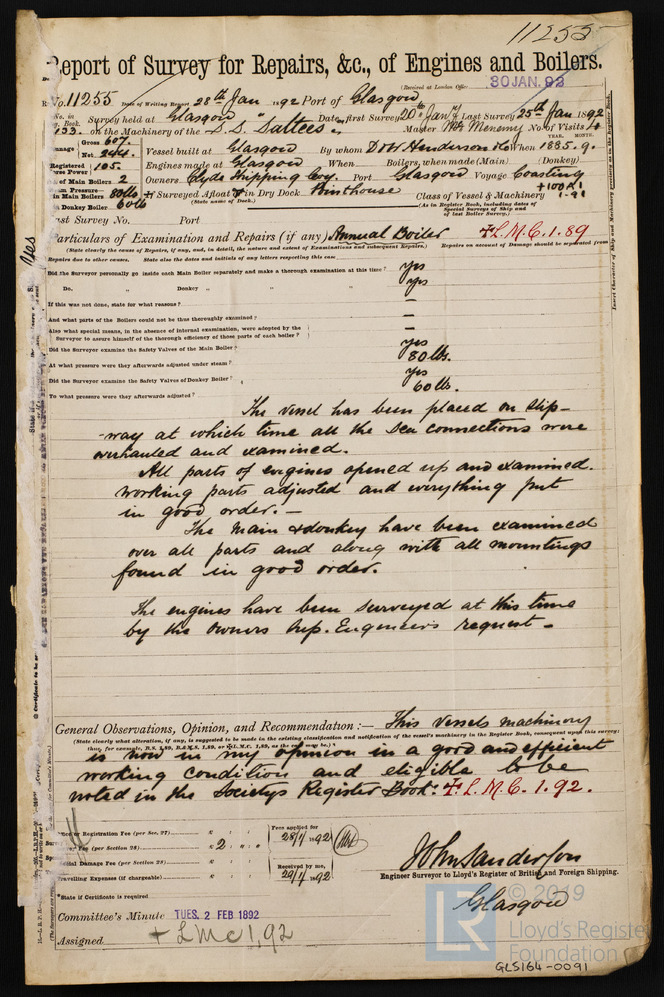 11255
Report of Survey for Repairs, &c., of Engines and Boilers.
(Received at London Office 30 JAN. 92
No. 11255 Date of Writing Report 28th Jan 1892 Port of Glasgow
No. in Reg. Book. Survey held at Glasgow Date, first Survey 20th Jany Last Survey 25th Jan 1892
133 on the Machinery of the S.S. "Saltees" Master Mc Menemy No. of Visits 4
Tonnage Gross 607. Net 244. Vessel built at Glasgow By whom D & W Henderson & Co When 1885.-9. YEAR. MONTH.
Registered Horse Power 105. Engines made at Glasgow When Boilers, when made (Main) (Donkey)
No. of Main Boilers 2 Owners Clyde Shipping Coy. Port Glasgow Voyage Coasting
Steam Pressure in Main Boilers 80 lbs If Surveyed Afloat or in Dry Dock Pointhouse Class of Vessel & Machinery +100A1 1-91
in Donkey Boiler 60 lb (State name of Dock.) (As in Register Book, including dates of Special Surveys of Ship and of last Boiler Survey.)
Last Survey No. Port
Particulars of Examination and Repairs (if any) Annual Boiler +L.M.C. 1.89
State clearly the cause of Repairs, if any, and, in detail, the nature and extent of Examinations and subsequent Repairs.) Repairs on account of Damage should be separated from
Repairs due to other causes. State also the dates and initials of any letters respecting this case
Did the Surveyor personally go inside each Main Boiler separately and make a thorough examination at this time? yes
Do. " Donkey " " " yes
If this was not done, state for what reasons? –
And what parts of the Boilers could not be thus thoroughly examined? –
Also what special means, in the absence of internal examination, were adopted by the
Surveyor to assure himself of the thorough efficiency of those parts of each boiler? –
Did the Surveyor examine the Safety Valves of the Main Boiler? yes
At what pressure were they afterwards adjusted under steam? 80 lbs.
Did the Surveyor examine the Safety Valves of Donkey Boiler? yes
To what pressure were they afterwards adjusted? 60 lbs.
The vessel has been placed on Slip-
-way at which time all the Sea connections were
overhauled and examined.
All parts of engines opened up and examined.
working parts adjusted and everything put
in good order.–
The main & donkey have been examined
over all parts and along with all mountings
found in good order.
The engines have been surveyed at this time
by the Owners Sup. Engineers request –
General Observations, Opinion, and Recommendation :— This vessels machinery
(State clearly what alteration, if any, is suggested to be made in the existing classification and notification of the vessel's machinery in the Register Book, consequent upon this survey;
thus, for example, B.S. 1,89, B.&M.S. 1,89, or +L.M.C. 1,89, as the case may be.)
is now in my opinion in a good and efficient
working condition and eligible to be
noted in the Societys Register Book. +L.M.C. 1.92.
or Registration Fee (per Sec. 27) £ : : Fees applied for
Fee (per Section 28) £ 2 : " : " 28/1/1892
Special Damage Fee (per Section 28) £ : : Received by me,
Travelling Expenses (if chargeable) £ : : 29/1/1892
*State if Certificate is required
John Sanderson
Engineer Surveyor to Lloyd's Register of British and Foreign Shipping.
Glasgow
Committee's Minute TUES. 2 FEB 1892
Assigned + LMC 1,92
Yes
LR © 2019
Lloyd's Register
Foundation
GLS164-0091